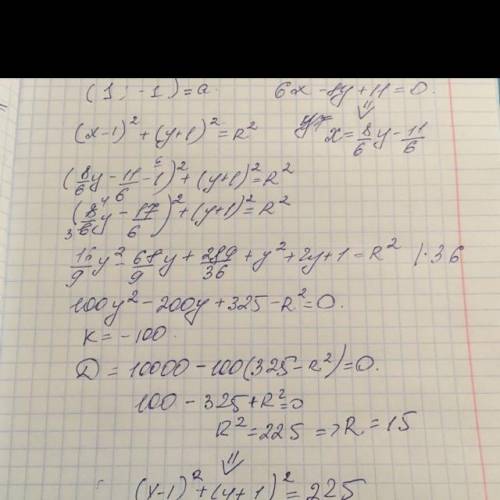 (1; -1) = a.    6x - 8y + 11 = 0.
(x-1)² + (y+1)² = R²    x = 8/6 y - 11/6
(8/6 y - 11/6 - 1)² + (y+1)² = R²
(8/6 y - 17/6)² + (y+1)² = R²
16/9 y² - 68/9 y + 289/36 + y² + 2y + 1 = R² |·36
100y² - 200y + 325 - R² = 0.
K = -100.
D = 10000 - 100(325 - R²) = 0.
100 - 325 + R² = 0
R² = 225 => R = 15
(x-1)² + (y+1)² = 225